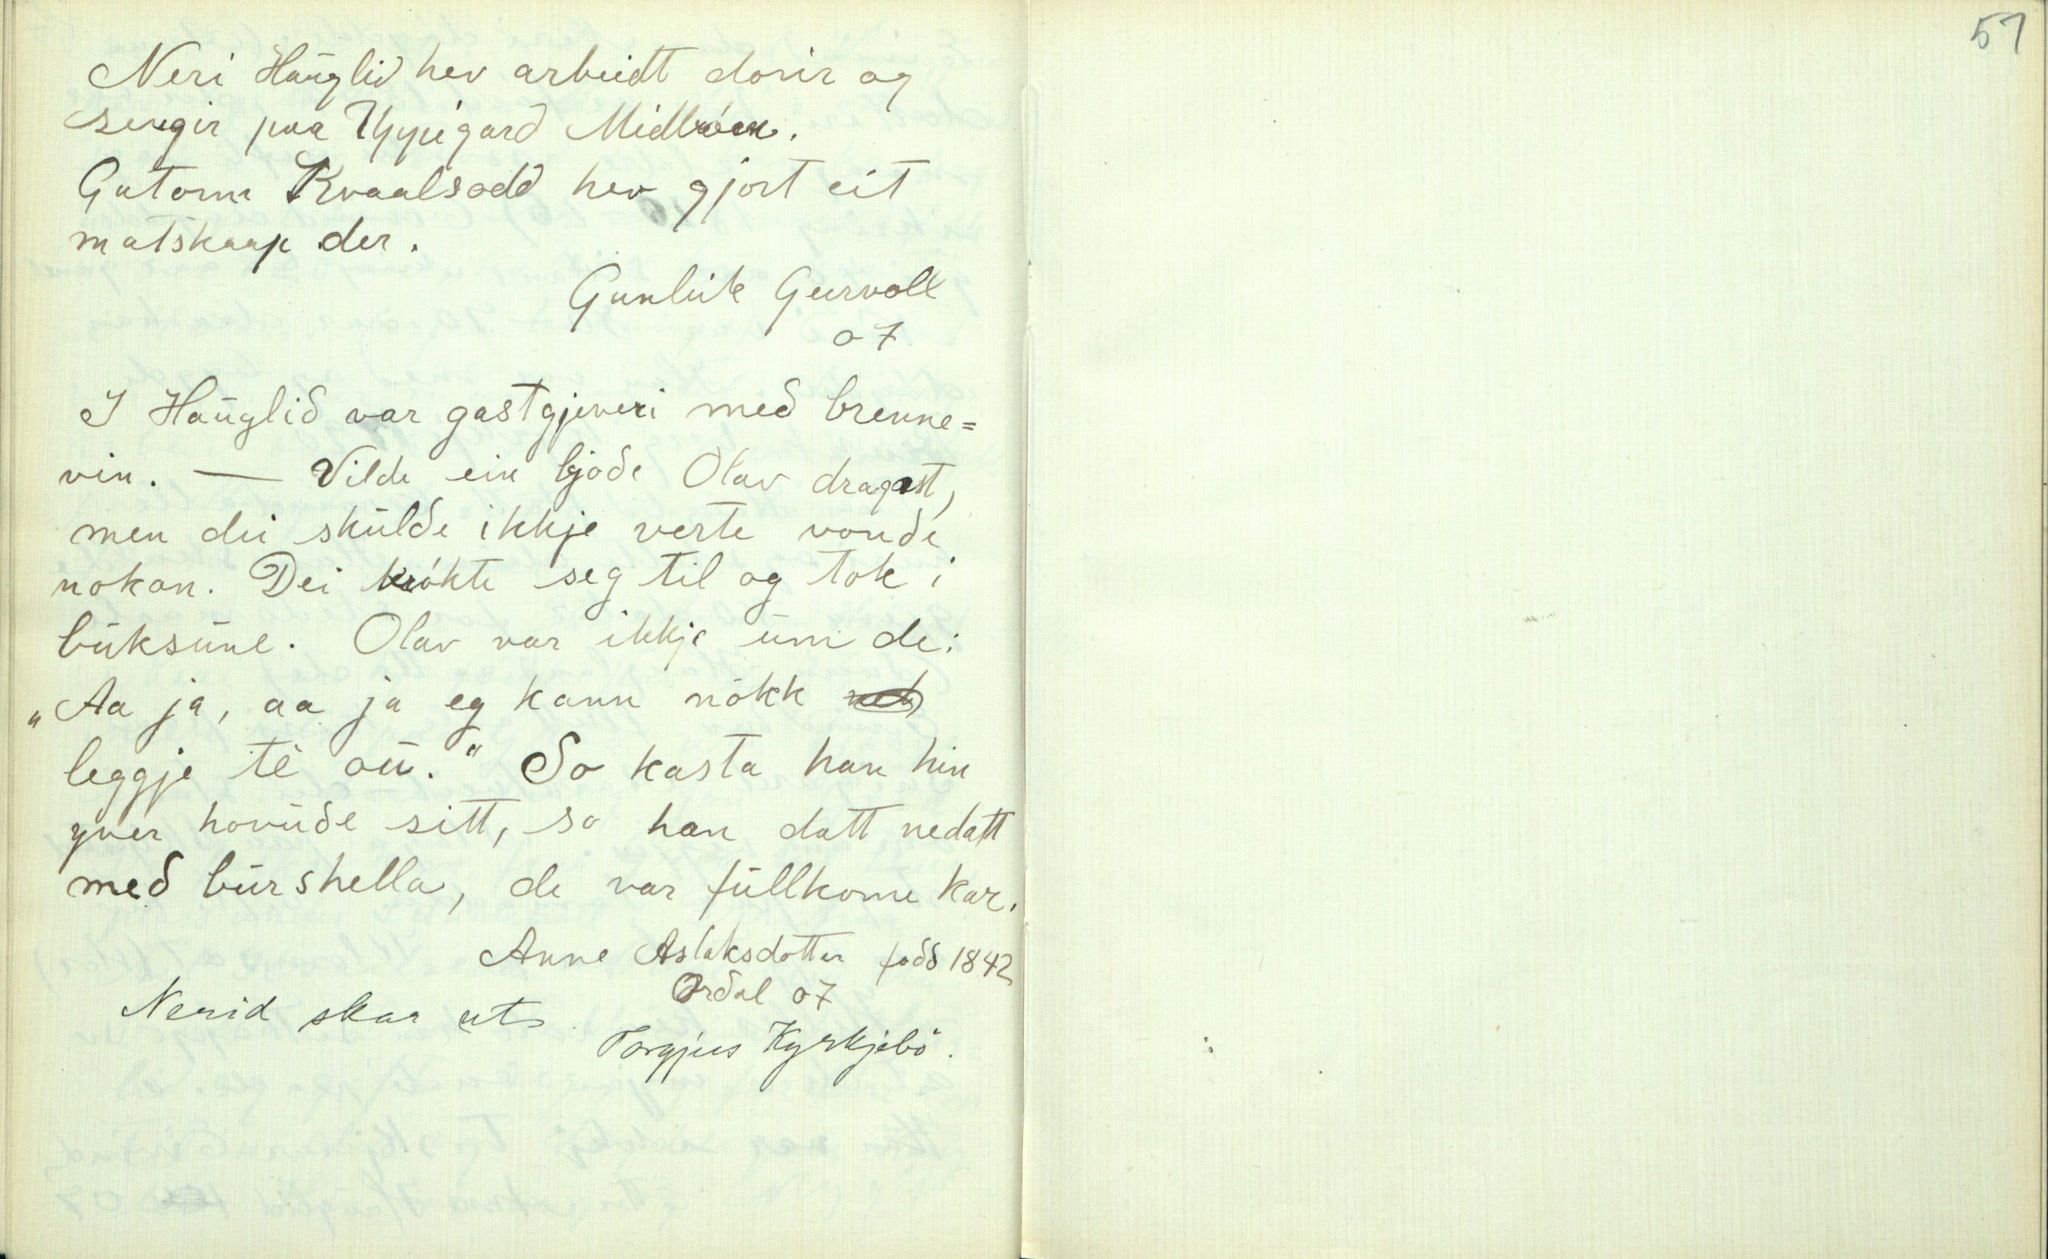 57
Neri Haüglid hev arbeidt dorir og
sengir paa Uppigard Midbøen.
Gutorm Kvaalsodd hev gjort eit
matskaap der.
Gunleik Geirvoll
07
I Haüglið var gastgjeveri með brenne=
vin. — Vilde ein bjode Olav dragast,
men dei skülde ikkje verte vonde
nokon. Dei krókte seg til og tok i
büksüne. Olav var ikkje üm de:
„Aa ja, aa ja eg kann nókk
leggje té oü." So kasta han hin
yver hovüðe sitt, so han datt nedatt
með bürshella, de var füllkome kar.
Anne Aslaksdotter fødd 1842
Ordal 07
Nerid skar ut
Torgjus Kyrkjebö.